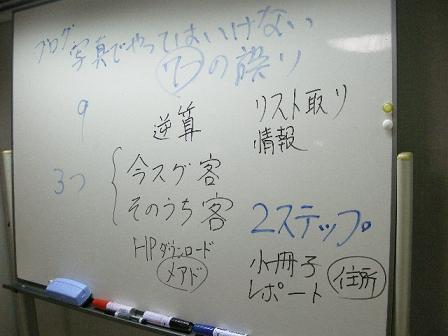 ブログ
写真でやってはいけない
7つの誤り
9
逆算
リスト取り
情報
3つ
今スグ客
そのうち客
2ステップ。
HPダウンロード
メアド
小冊子
レポート
住所